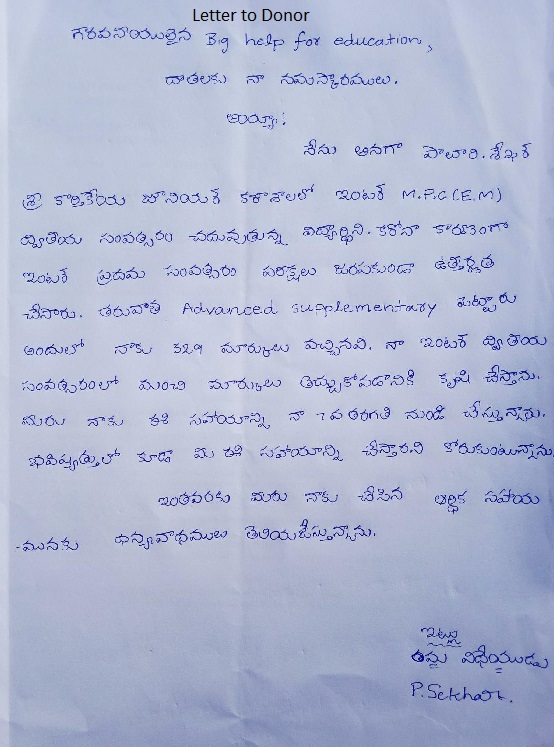 Letter to Donor
గౌరవనీయులైన Big help for education,
దాతలకు నా నమస్కారములు.
అయ్యా!
నేను అనగా పాలారి. శేఖర్
శ్రీ కార్తికేయ జూనియర్ కళాశాలలో ఇంటర్ M.P.C (E.M)
ద్వితీయ సంవత్సరం చదువుతున్న విద్యార్థిని. కరోనా కారణంగా
ఇంటర్ ప్రథమ సంవత్సరం పరీక్షలు జరుపకుండా ఉత్తీర్ణత
చేసారు. తరువాత Advanced supplementary పెట్టారు
అందులో నాకు 329 మార్కులు వచ్చినవి. నా ఇంటర్ ద్వితీయ
సంవత్సరంలో మంచి మార్కులు తెచ్చుకోవడానికి కృషి చేస్తాను.
మీరు నాకు ఈ సహాయాన్ని నా 7వ తరగతి నుండి చేస్తున్నారు.
భవిష్యత్తులో కూడా మీ ఈ సహాయాన్ని చేస్తారని కోరుకుంటున్నాను.
ఇంతవరకు మీరు నాకు చేసిన ఆర్థిక సహాయ
-మునకు ధన్యవాదములు తెలియజేస్తున్నాను.
ఇట్లు
తమ విధేయుడు
P. Sekhar.